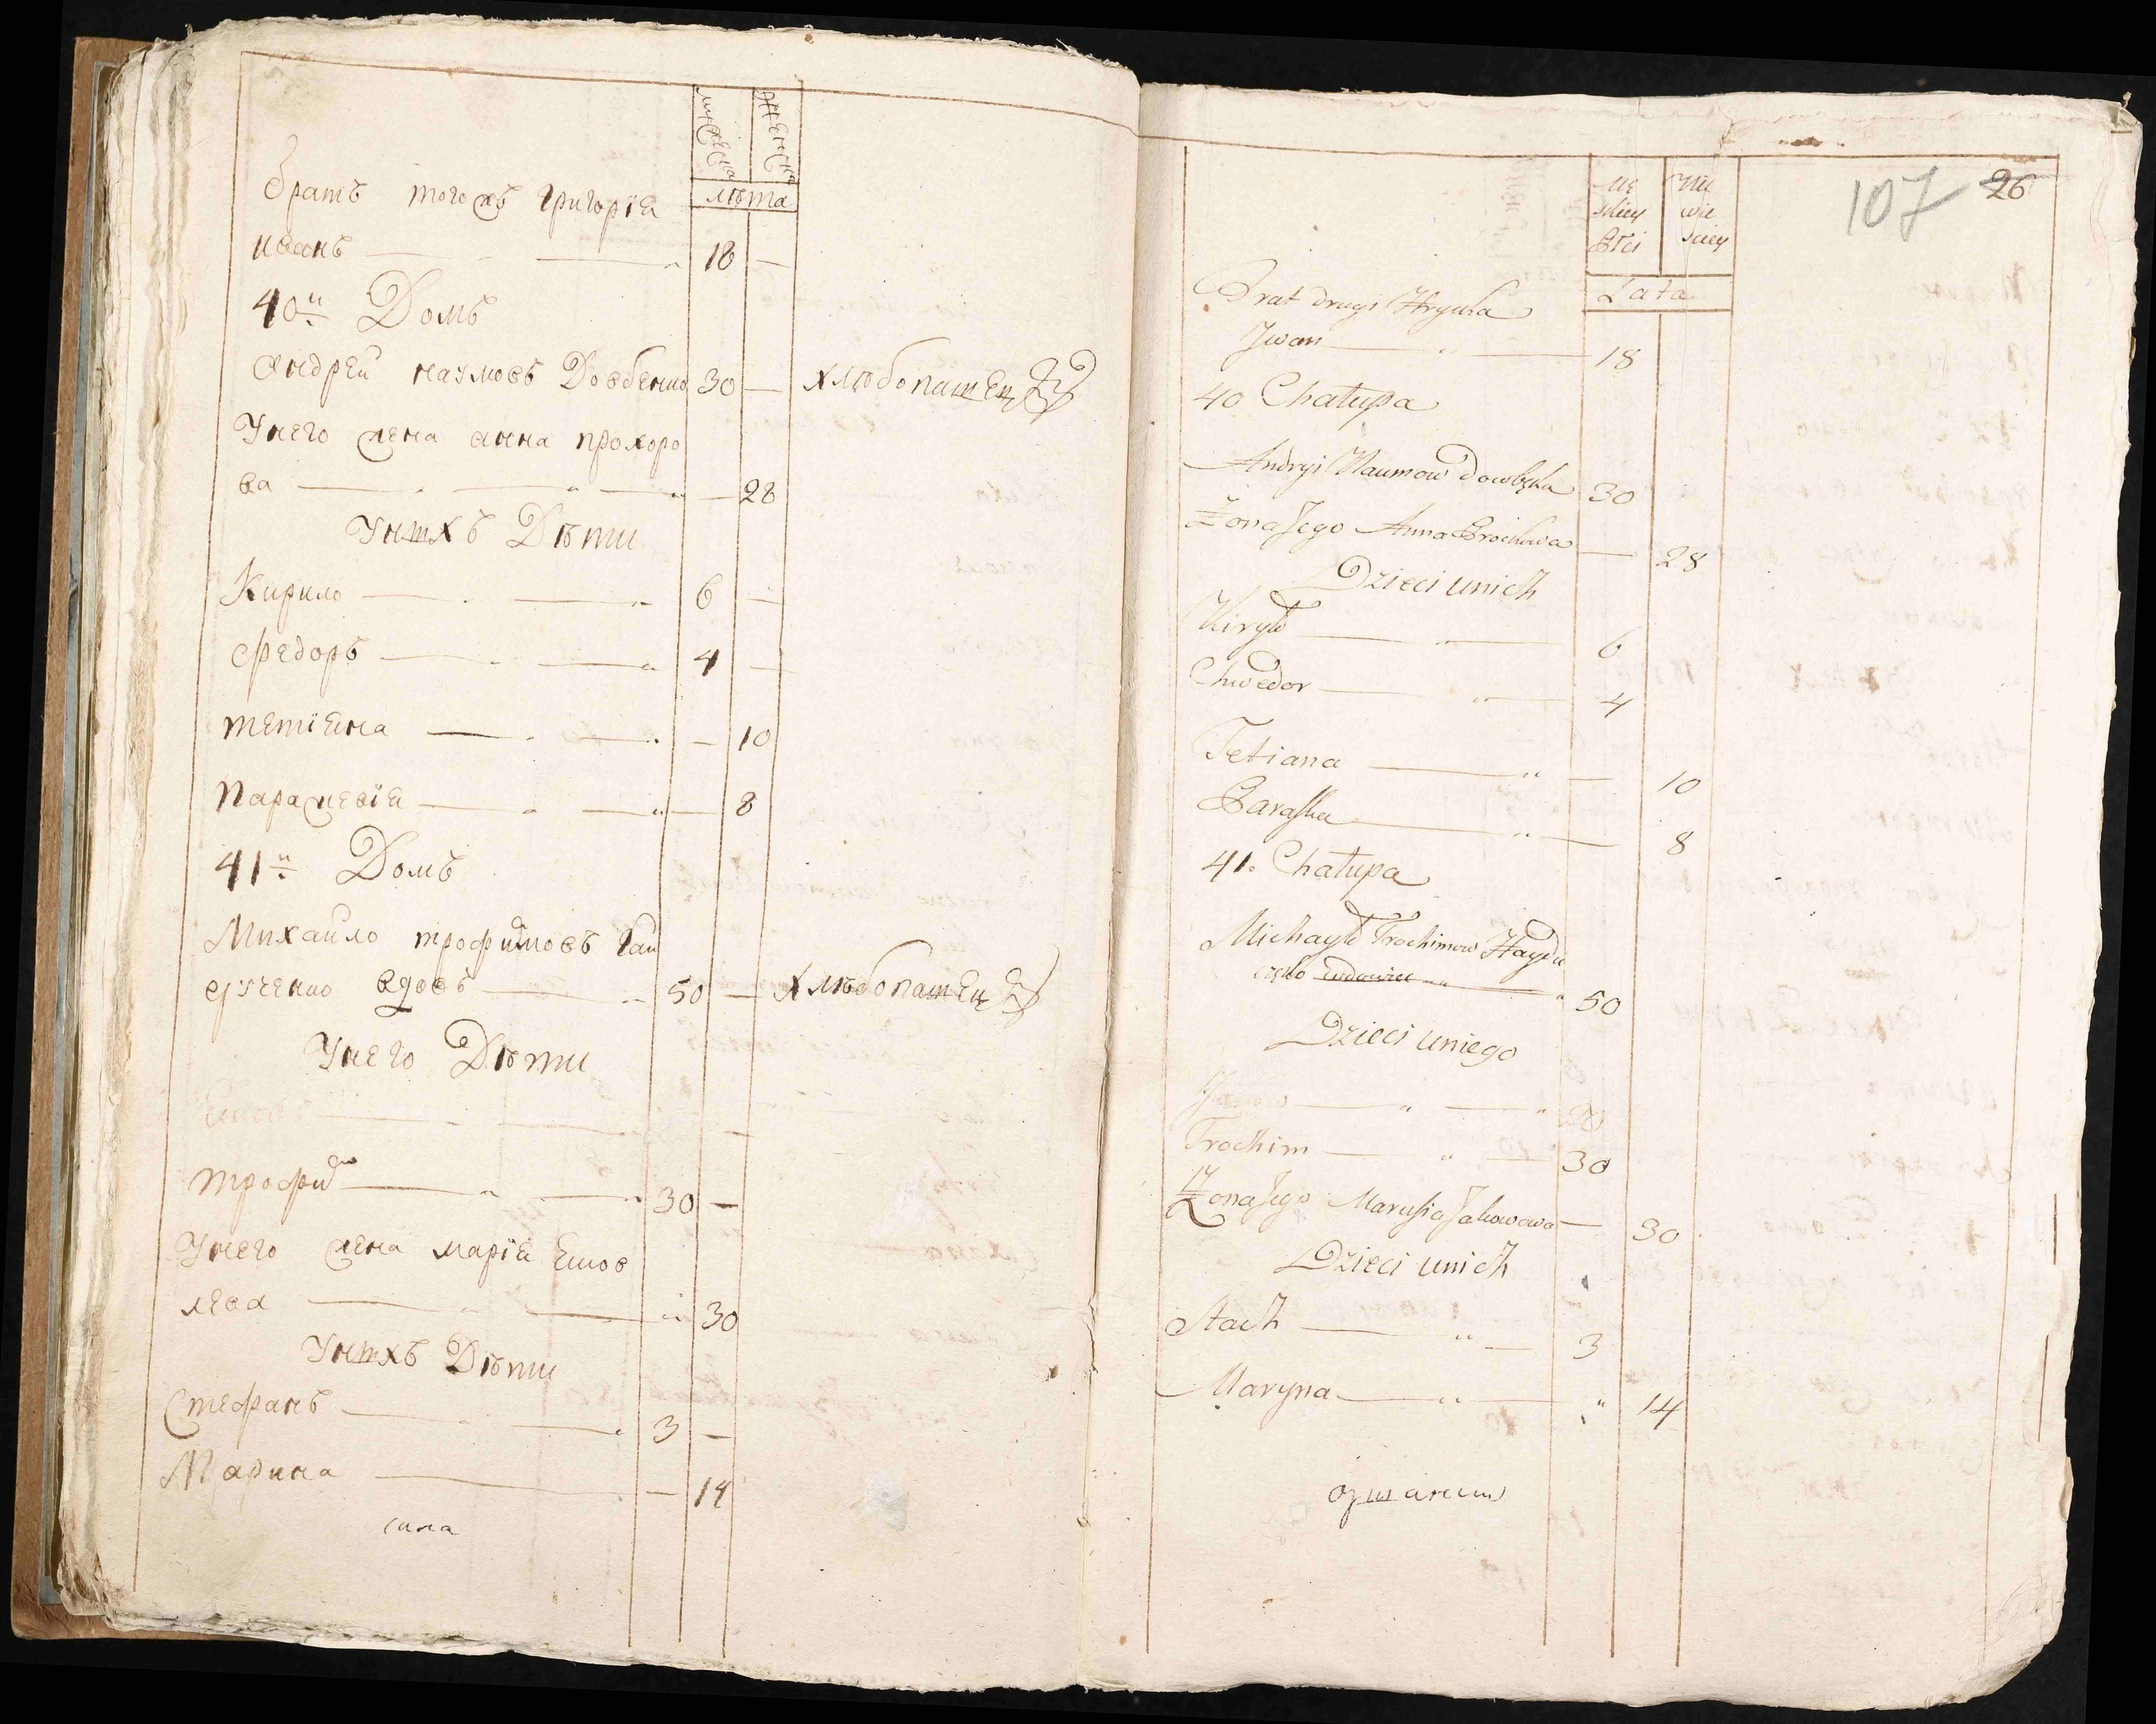 мужеска женска
лѣта
братъ тогожъ григорія
иванъ 18 —
40й Домъ
Андрей наумовъ Довбенко 30 — хлѣбопашецъ
Унего жена анна прохоро
ва — 28
Унихъ Дѣти
Кирило 6 —
Федоръ 4 —
тетіяна — 10
Параскевія — 8
41й Домъ
Михайло трофимовъ Гай
дученко вдовъ 50 — хлѣбопашецъ
Унего Дѣти
трофим 30 —
Унего жена марія Яков
лева 30
Унихъ Дѣти
Стефанъ 3 —
Марина — 14
107 26
Mę
skiey
Płci
Nie
wie
sciey
Lata
Brat drugi Hryćka
Jwan 18
40 Chałupa
Andryi Naumow Dowbęka 30
Żona Jego Anna Prochowa — 28
Dzieci unich
Kiryło 6
Chwedor 4
Tetiana — 10
Paraska — 8
41. Chałupa
Michayło Trochimow Haydu
częko wdowiec 50
Dzieci uniego
Trochim 30
Żona Jego Marusia Jakowowa — 30
Dzieci unich
Stach 3
Maryna 14